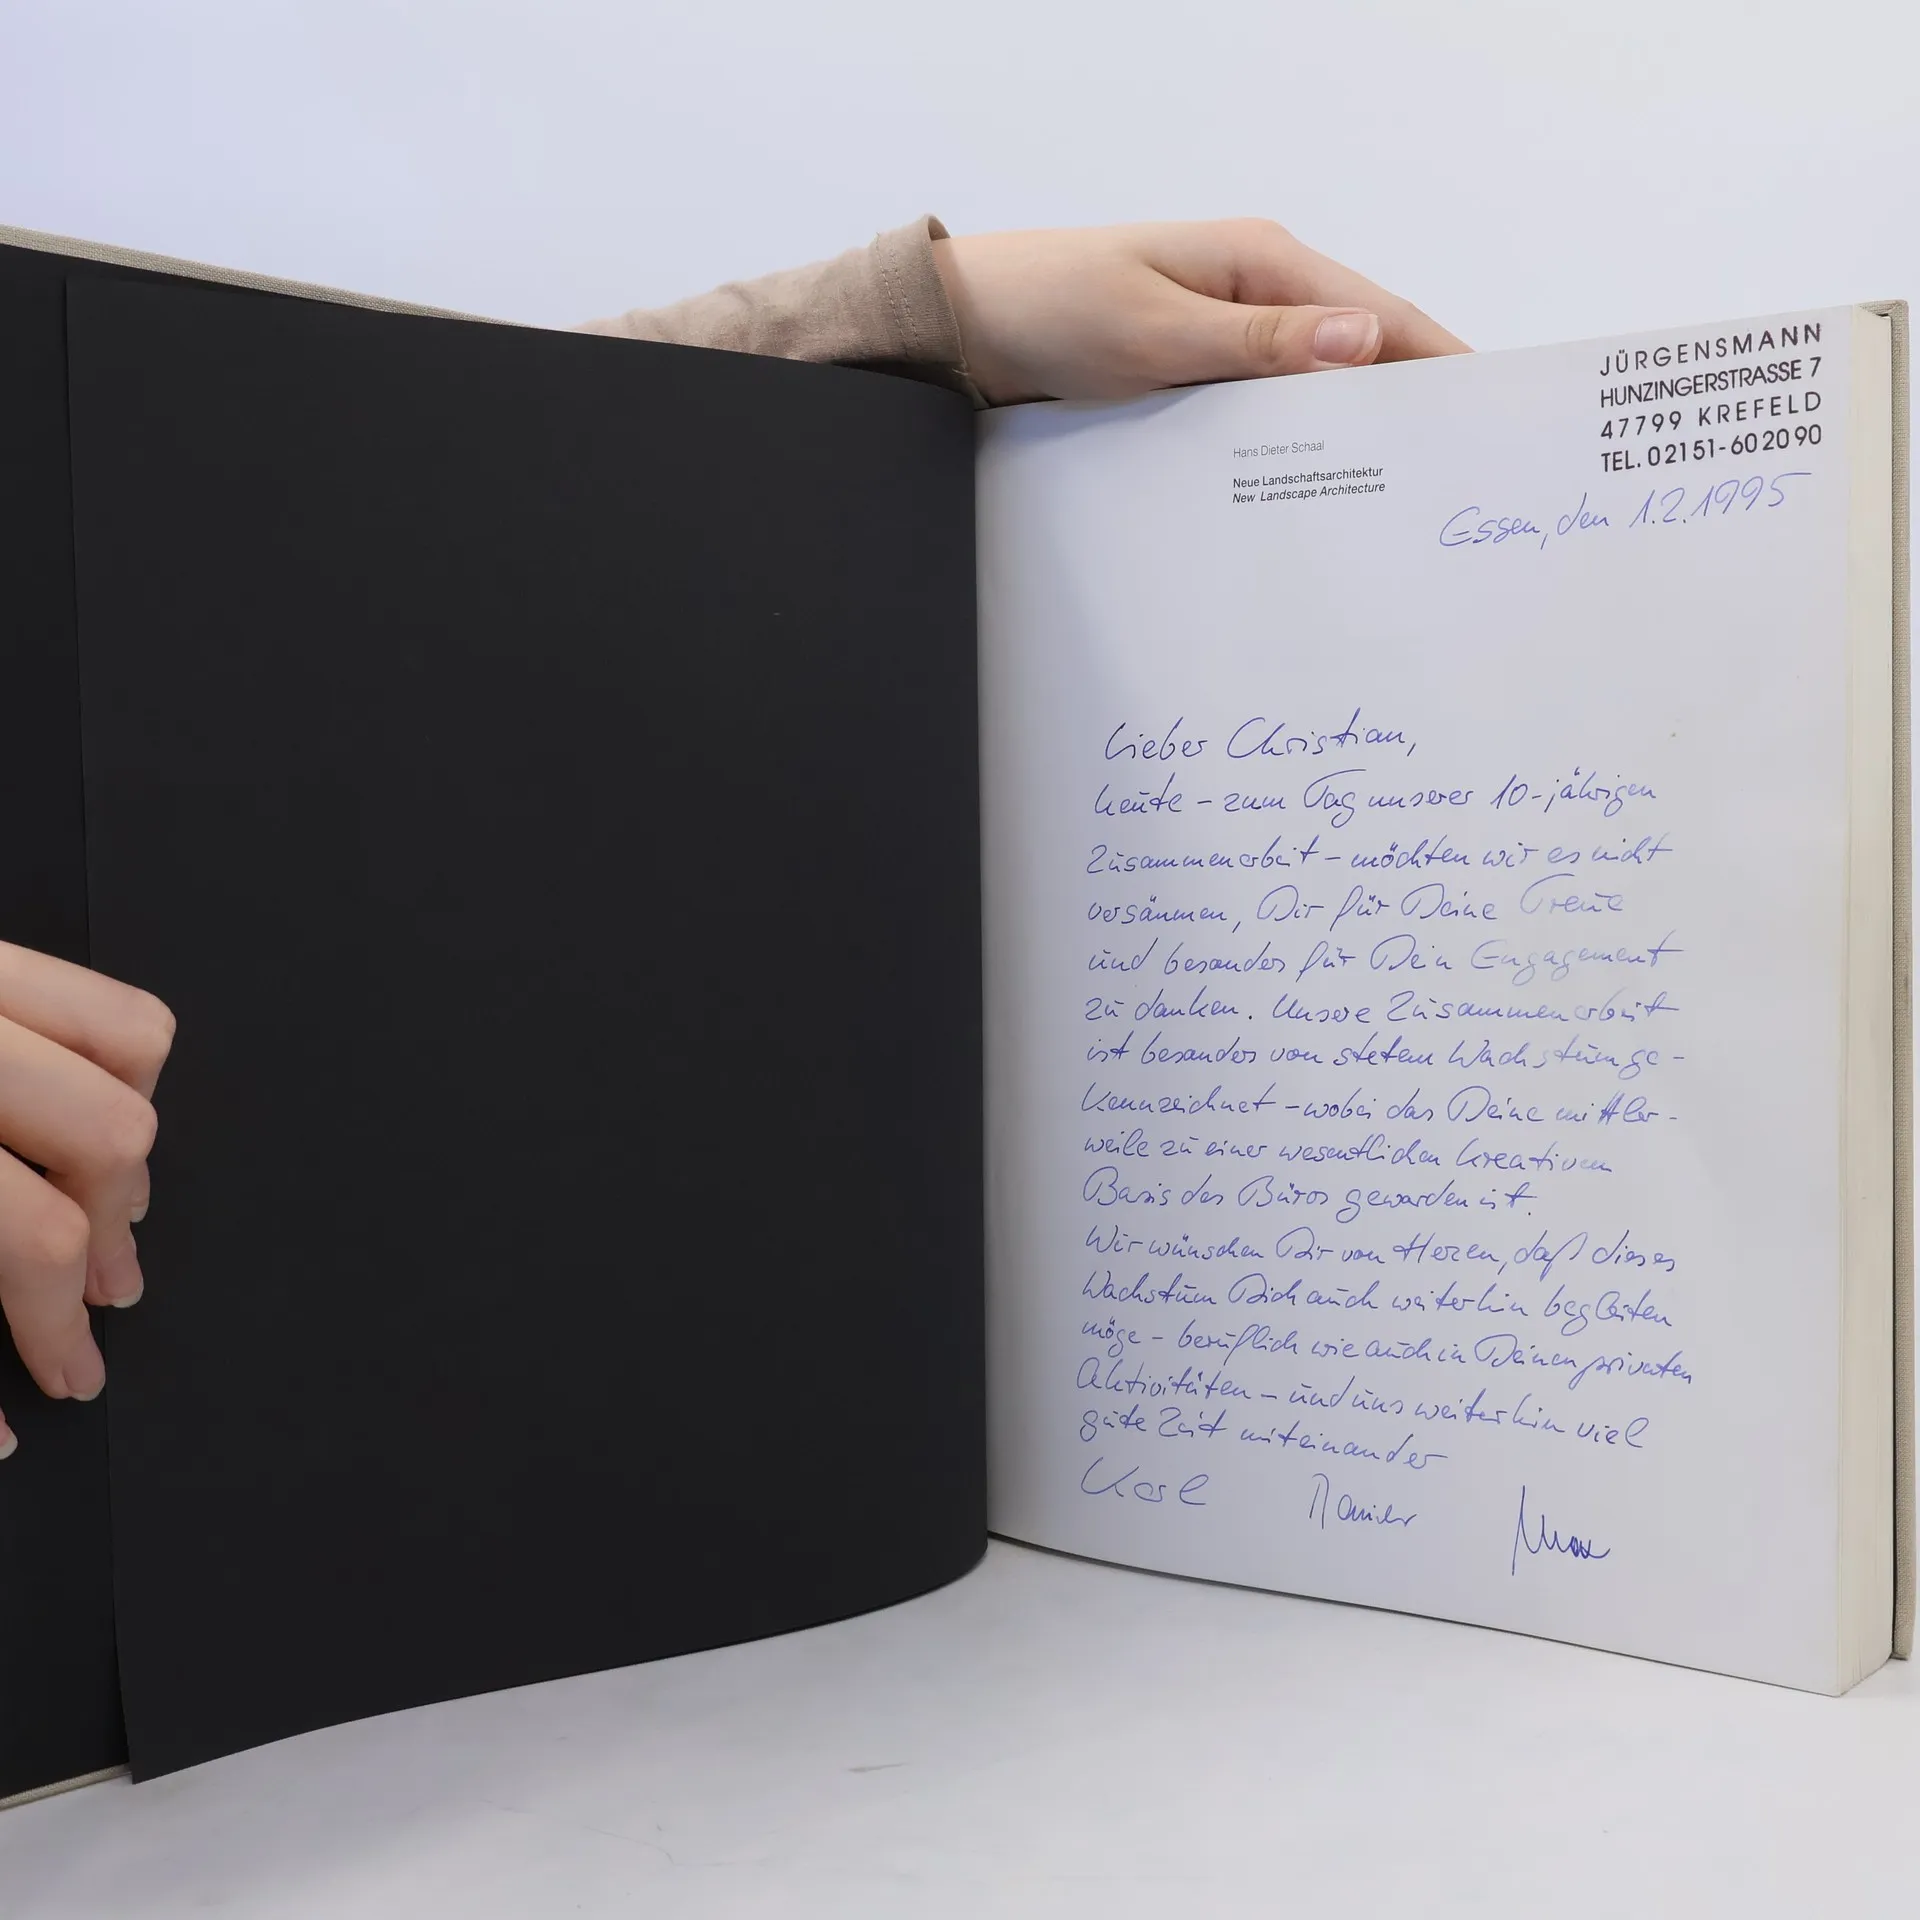 JÜRGENSMANN
HUNZINGERSTRASSE 7
47799 KREFELD
TEL. 02151-602090
Hans Dieter Schaal
Neue Landschaftsarchitektur
New Landscape Architecture
Essen, den 1.2.1995
Lieber Christian,
heute – zum Tag unserer 10-jährigen
Zusammenarbeit – möchten wir es nicht
versäumen, Dir für Deine Treue
und besonders für Dein Engagement
zu danken. Unsere Zusammenarbeit
ist besonders von stetem Wachstum ge-
kennzeichnet – wobei das Deine mittler-
weile zu einer wesentlichen kreativen
Basis des Büros geworden ist.
Wir wünschen Dir von Herzen, daß dieses
Wachstum Dich auch weiterhin begleiten
möge – beruflich wie auch in Deinen privaten
Aktivitäten – und uns weiterhin viel
gute Zeit miteinander
Karl